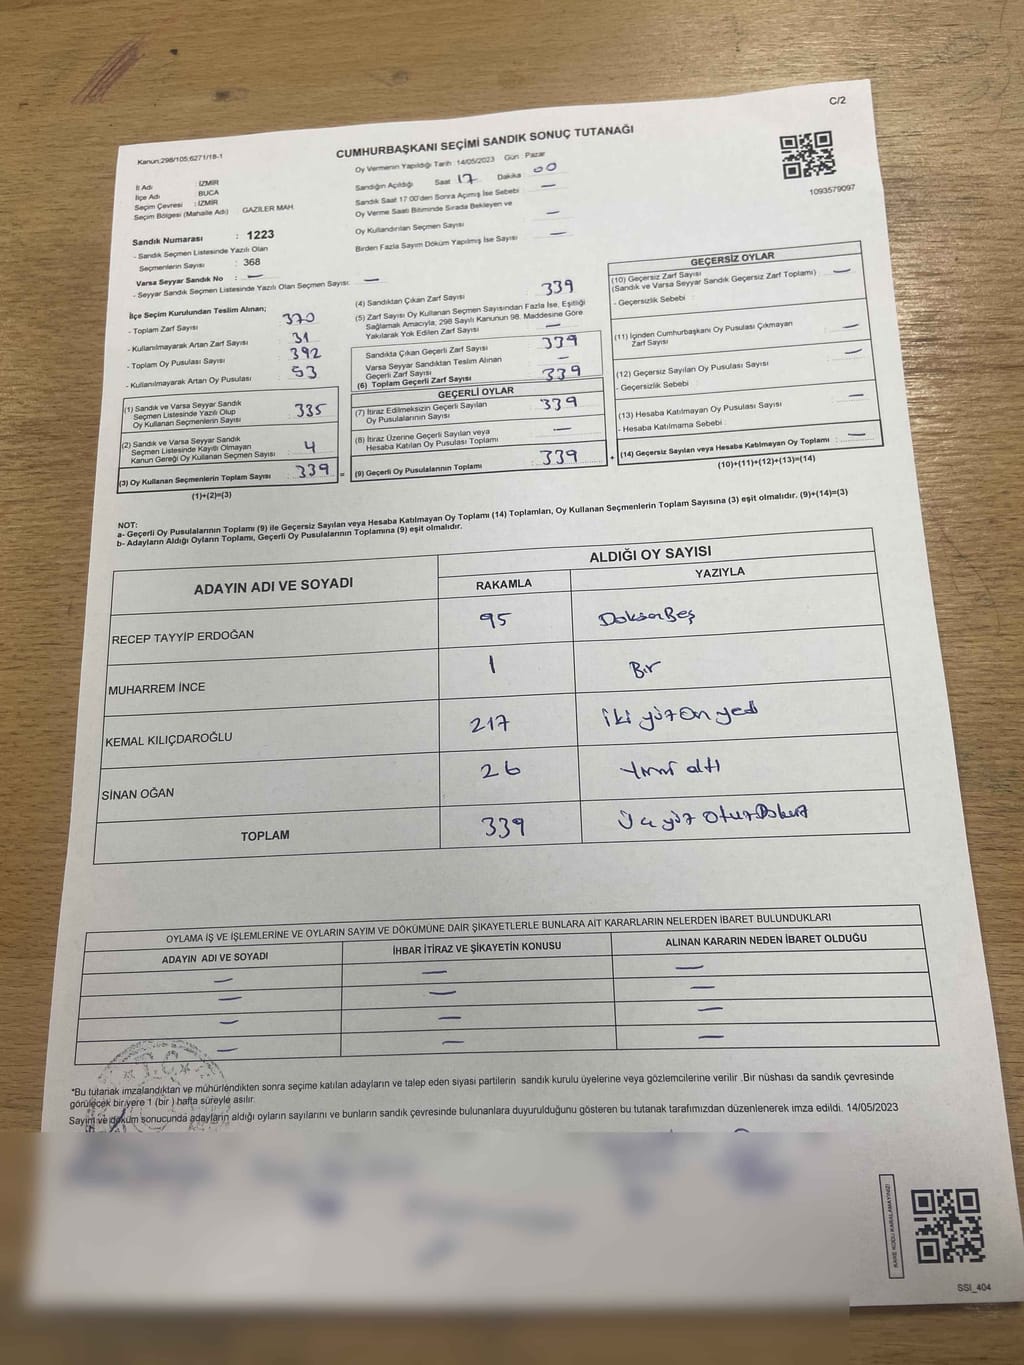 C/2
Kanun:298/105;6271/18-1
CUMHURBAŞKANI SEÇİMİ SANDIK SONUÇ TUTANAĞI
Oy Vermenin Yapıldığı Tarih :14/05/2023 Gün : Pazar
1093579097
İl Adı : İZMİR
İlçe Adı BUCA
Seçim Çevresi : İZMİR
Seçim Bölgesi (Mahalle Adı) GAZİLER MAH.
Sandığın Açıldığı Saat 17 Dakika 00
Sandık Saat 17:00'den Sonra Açımış İse Sebebi —
Oy Verme Saati Bitiminde Sırada Bekleyen ve
Oy Kullandırılan Seçmen Sayısı —
Birden Fazla Sayım Döküm Yapılmış İse Sayısı —
Sandık Numarası : 1223
- Sandık Seçmen Listesinde Yazılı Olan
Seçmenlerin Sayısı : 368
Varsa Seyyar Sandık No : —
- Seyyar Sandık Seçmen Listesinde Yazılı Olan Seçmen Sayısı: —
İlçe Seçim Kurulundan Teslim Alınan;
- Toplam Zarf Sayısı 370
- Kullanılmayarak Artan Zarf Sayısı 31
- Toplam Oy Pusulası Sayısı 392
- Kullanılmayarak Artan Oy Pusulası 53
(1) Sandık ve Varsa Seyyar Sandık
Seçmen Listesinde Yazılı Olup
Oy Kullanan Seçmenlerin Sayısı 335
(2) Sandık ve Varsa Seyyar Sandık
Seçmen Listesinde Kayıtlı Olmayan
Kanun Gereği Oy Kullanan Seçmen Sayısı : 4
(3) Oy Kullanan Seçmenlerin Toplam Sayısı : 339 =
(1)+(2)=(3)
(4) Sandıktan Çıkan Zarf Sayısı 339
(5) Zarf Sayısı Oy Kullanan Seçmen Sayısından Fazla İse, Eşitliği
Sağlamak Amacıyla; 298 Sayılı Kanunun 98. Maddesine Göre
Yakılarak Yok Edilen Zarf Sayısı —
Sandıkta Çıkan Geçerli Zarf Sayısı 339
Varsa Seyyar Sandıktan Teslim Alınan
Geçerli Zarf Sayısı —
(6) Toplam Geçerli Zarf Sayısı 339
GEÇERLİ OYLAR
(7) İtiraz Edilmeksizin Geçerli Sayılan
Oy Pusulasının Sayısı : 339
(8) İtiraz Üzerine Geçerli Sayılan veya
Hesaba Katılan Oy Pusulası Toplamı —
(9) Geçerli Oy Pusulalarının Toplamı : 339 +
GEÇERSİZ OYLAR
(10) Geçersiz Zarf Sayısı
(Sandık ve Varsa Seyyar Sandık Geçersiz Zarf Toplamı) —
- Geçersizlik Sebebi :
(11) İçinden Cumhurbaşkanı Oy Pusulası Çıkmayan
Zarf Sayısı —
(12) Geçersiz Sayılan Oy Pusulası Sayısı —
- Geçersizlik Sebebi
(13) Hesaba Katılmayan Oy Pusulası Sayısı —
- Hesaba Katılmama Sebebi :
(14) Geçersiz Sayılan veya Hesaba Katılmayan Oy Toplamı : —
(10)+(11)+(12)+(13)=(14)
NOT:
a- Geçerli Oy Pusulalarının Toplamı (9) ile Geçersiz Sayılan veya Hesaba Katılmayan Oy Toplamı (14) Toplamları, Oy Kullanan Seçmenlerin Toplam Sayısına (3) eşit olmalıdır. (9)+(14)=(3)
b- Adayların Aldığı Oyların Toplamı, Geçerli Oy Pusulalarının Toplamına (9) eşit olmalıdır.
ADAYIN ADI VE SOYADI ALDIĞI OY SAYISI
RAKAMLA YAZIYLA
RECEP TAYYİP ERDOĞAN 95 Doksan Beş
MUHARREM İNCE 1 Bir
KEMAL KILIÇDAROĞLU 217 iki yüz on yedi
SİNAN OĞAN 26 yirmi altı
TOPLAM 339 Üç yüz otuz Dokuz
OYLAMA İŞ VE İŞLEMLERİNE VE OYLARIN SAYIM VE DÖKÜMÜNE DAİR ŞİKAYETLERLE BUNLARA AİT KARARLARIN NELERDEN İBARET BULUNDUKLARI
ADAYIN ADI VE SOYADI İHBAR İTİRAZ VE ŞİKAYETİN KONUSU ALINAN KARARIN NEDEN İBARET OLDUĞU
— — —
— — —
— — —
— — —
*Bu tutanak imzalandıktan ve mühürlendikten sonra seçime katılan adayların ve talep eden siyasi partilerin sandık kurulu üyelerine veya gözlemcilerine verilir .Bir nüshası da sandık çevresinde
görülecek bir yere 1 (bir ) hafta süreyle asılır.
Sayım ve döküm sonucunda adayların aldığı oyların sayılarını ve bunların sandık çevresinde bulunanlara duyurulduğunu gösteren bu tutanak tarafımızdan düzenlenerek imza edildi. 14/05/2023
KARE KODU KARALAMAYINIZ!
SSI_404